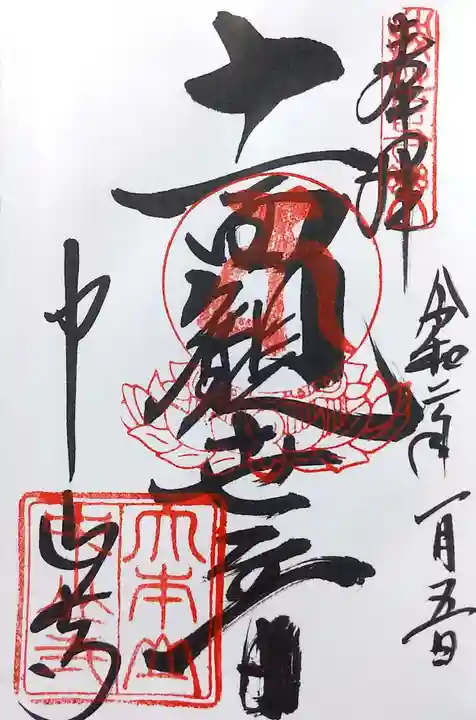 奉拝
令和二年 一月五日
十一面観世音
中山寺
大本山
中山寺